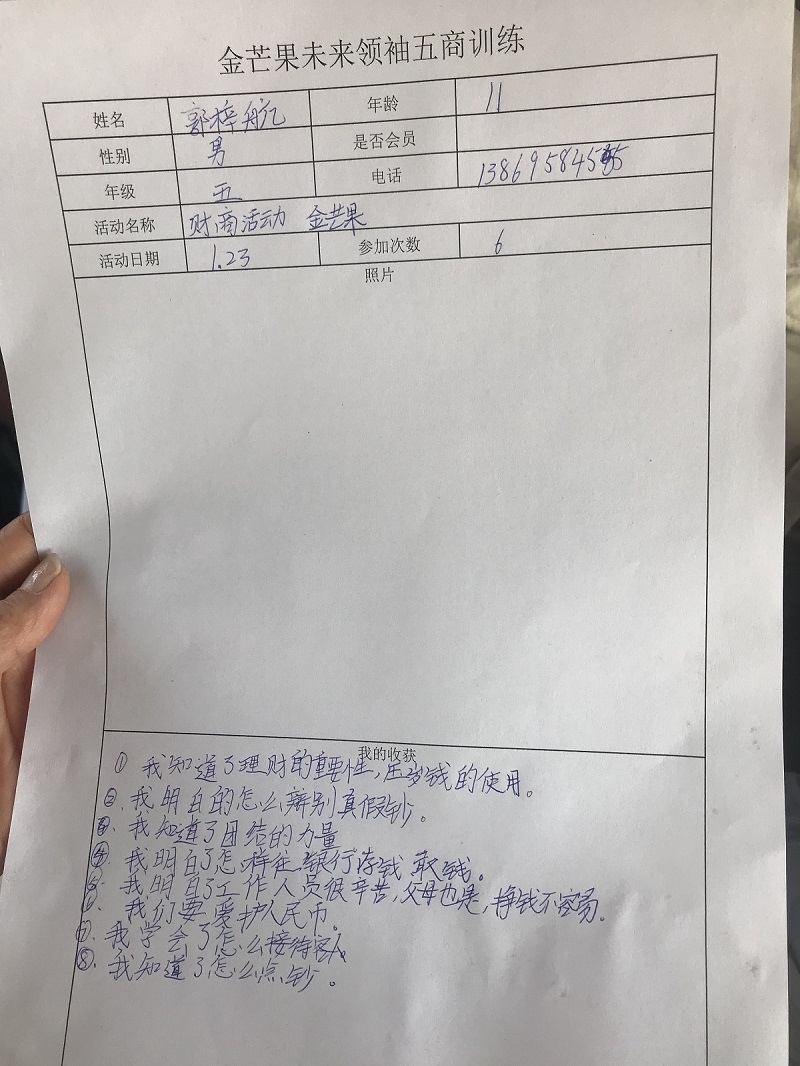 金芒果未来领袖五商训练
姓名 郭梓航 年龄 11
性别 男 是否会员
年级 五 电话
活动名称 财商活动 金芒果
活动日期 1.23 参加次数 6
照片
我的收获
① 我知道了理财的重要性,压岁钱的使用。
②. 我明白的怎么辨别真假钞。
③. 我知道了团结的力量
④. 我明白了怎样往银行存钱 取钱。
⑤. 我明白了工作人员很辛苦,父母也是,挣钱不容易。
⑥. 我们要爱护人民币。
⑦. 我学会了怎么接待客人
⑧. 我知道了怎么点钞。